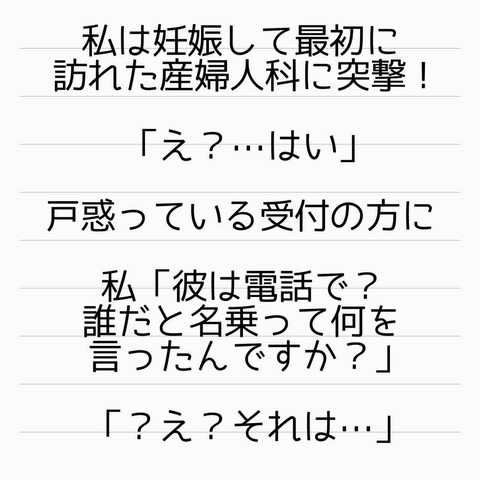 私は妊娠して最初に
訪れた産婦人科に突撃！
「え？…はい」
戸惑っている受付の方に
私「彼は電話で？
誰だと名乗って何を
言ったんですか？」
「？え？それは…」